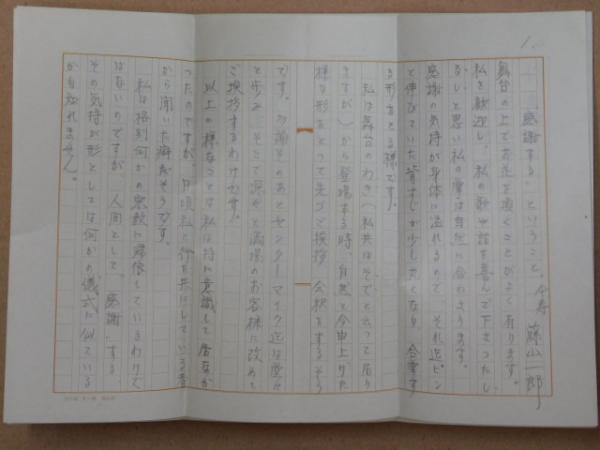 1.
「感謝する」ということ。 藤山一郎
舞台の上でお辞儀をすることがよく有ります。
私を歓迎し、私の歌や話を喜んで下さったし、
思い私の掌は自然に合わさります。
感謝の気持が身体に溢れるので、それ迄ピン
と伸びていた背すじが少し丸くなり、合掌す
る形をとる様です。
私は舞台のわき(私共はそでと云って居り
ますが)から登場する時、自然と今申上げた
様な形をとって先づご挨拶、会釈をするそう
です。そのあとセンターマイク迄は
と歩み、そこで深々と満場のお客様に改めて
ご挨拶するわけです。
以上の様なことは私は特に意識して居なか
ったのですが、日頃私と行を共にしている者
から聞いた癖だそうです。
私は格別何かの宗教に帰依しているわけで
はないのですが、人間として、「感謝」する、
その気持が形としては何かの儀式に似ている
か自分れません。